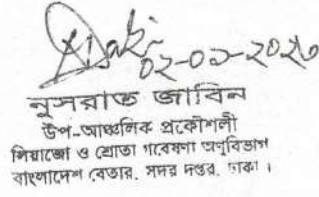 02-02-2023
নুসরাত জাবিন
উপ-আঞ্চলিক প্রকৌশলী
লিয়াজো ও শ্রোতা গবেষণা অনুবিভাগ
বাংলাদেশ বেতার, সদর দপ্তর, ঢাকা।